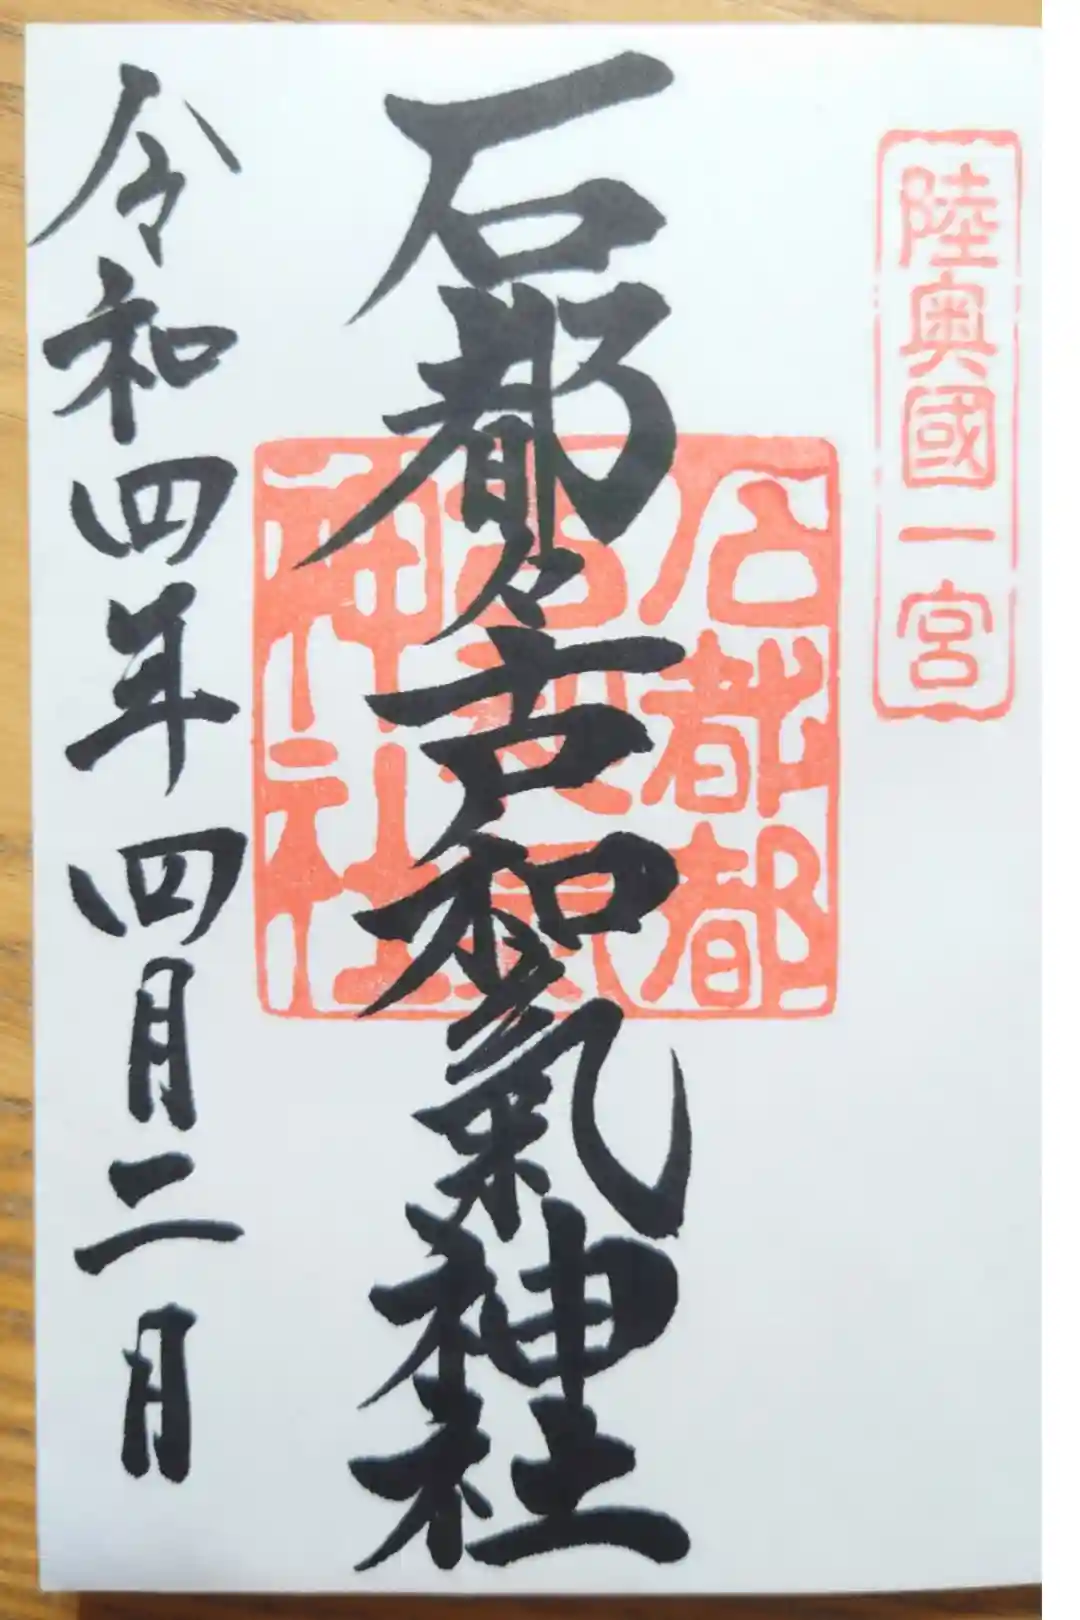 陸奥國一宮
石都々古和氣神社
石都都
古和氣
神社
令和四年四月二日